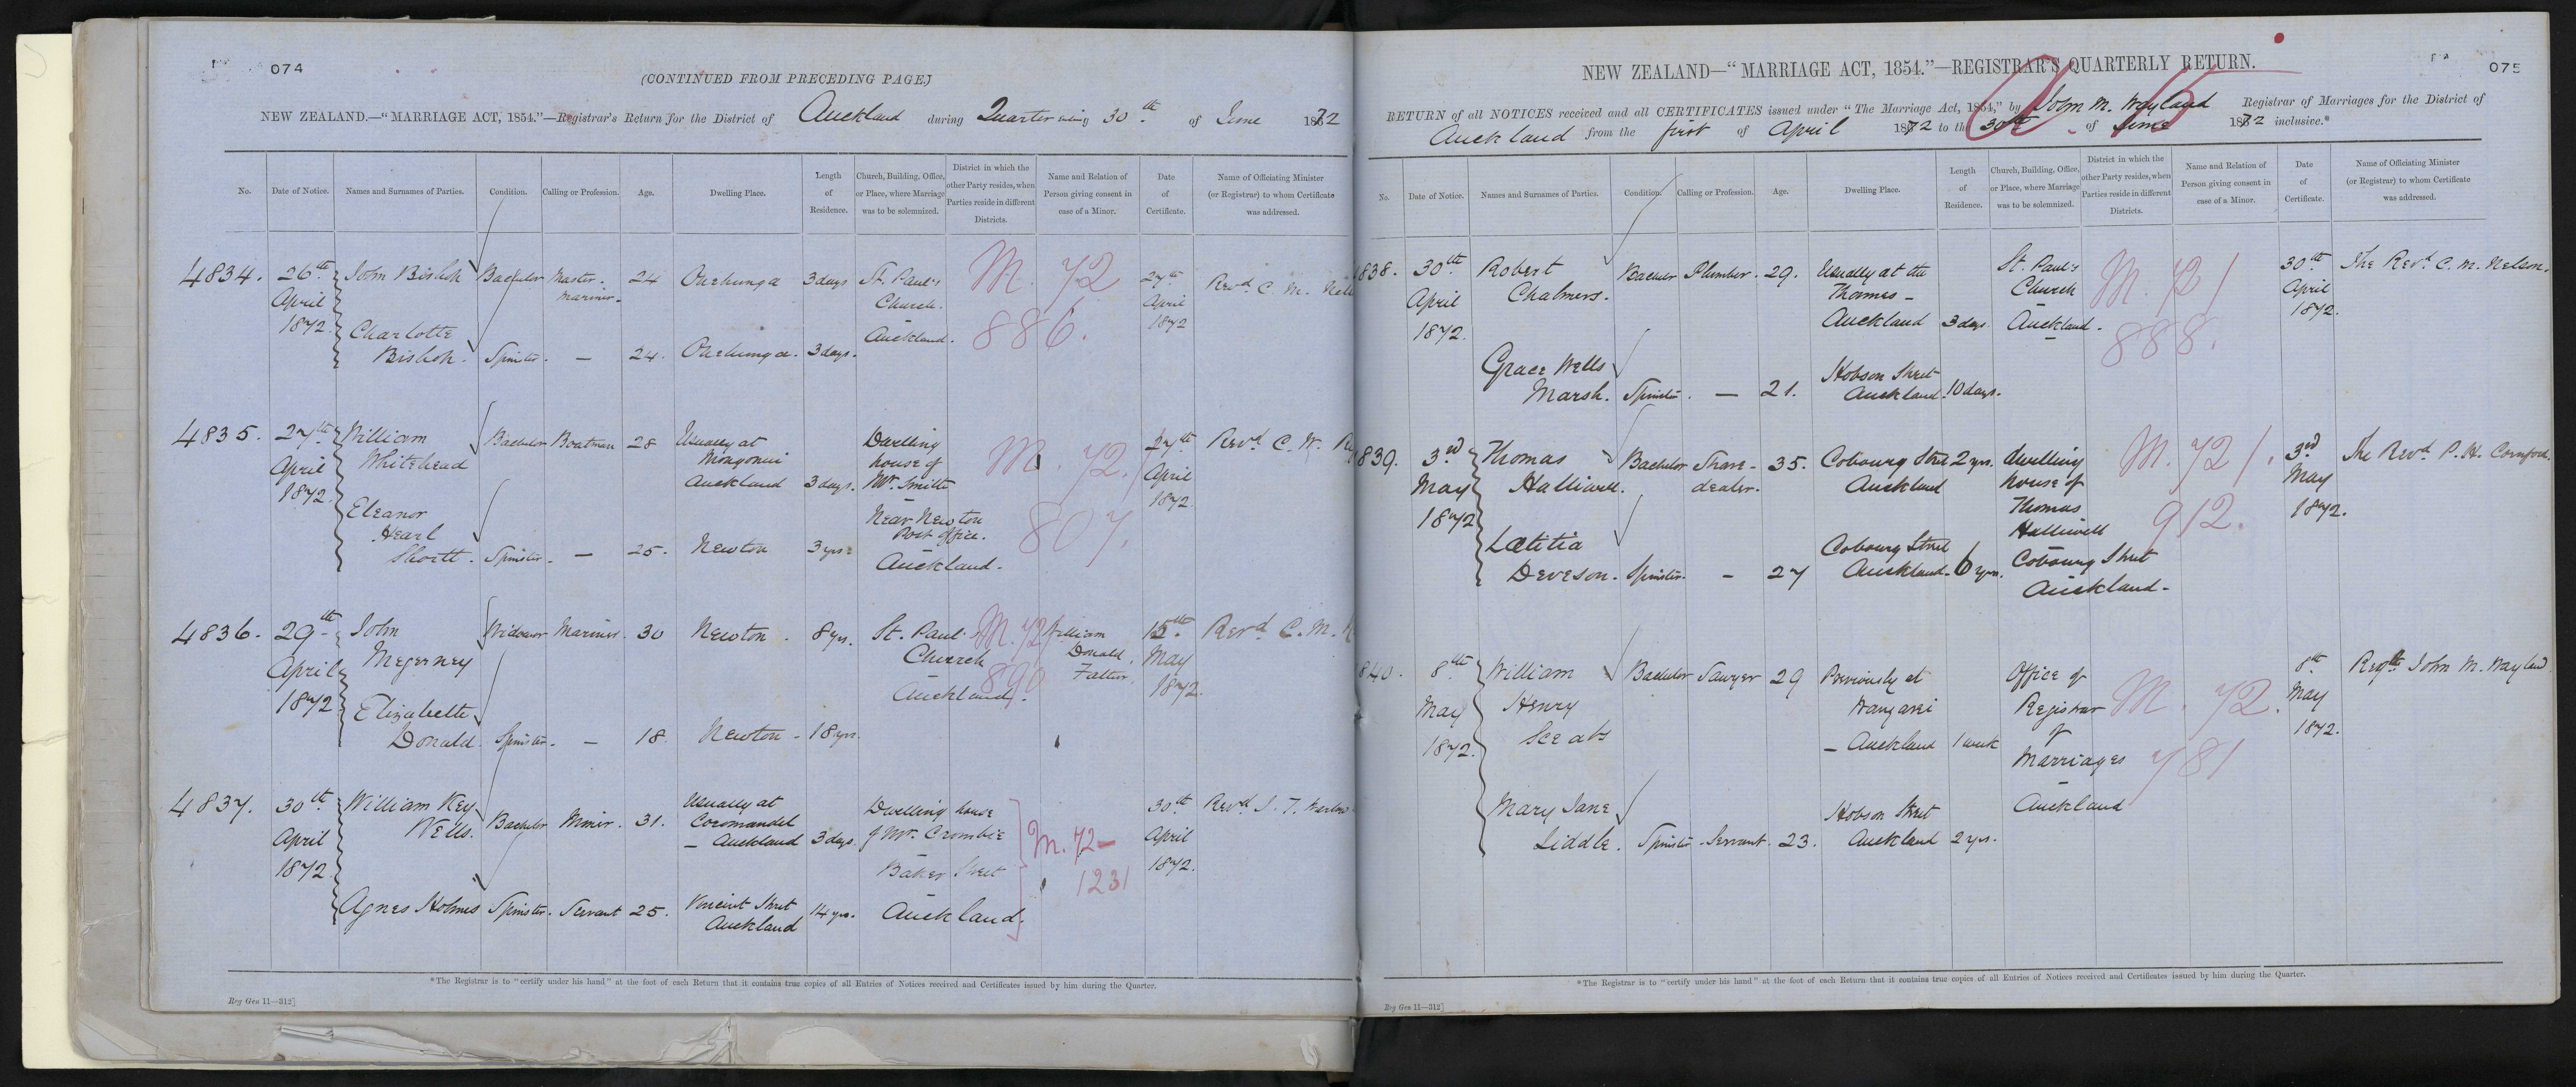 074
(CONTINUED FROM PRECEDING PAGE)
NEW ZEALAND.—"MARRIAGE ACT, 1854."—Registrar's Return for the District of Auckland during Quarter ending 30th of June 1872
No. Date of Notice. Names and Surnames of Parties. Condition. Calling or Profession. Age. Dwelling Place. Length of Residence. Church, Building, Office, or Place, where Marriage was to be solemnized. District in which the other Party resides, when Parties reside in different Districts. Name and Relation of Person giving consent in case of a Minor. Date of Certificate. Name of Officiating Minister (or Registrar) to whom Certificate was addressed.
4834. 26th April 1872. John Bishop Bachelor Master mariner. 24 Onehunga 3 days St. Paul's Church. Auckland. M. 72 886. 27th April 1872 Revd C. M. Nels
Charlotte Bishop. Spinster. — 24. Onehunga. 3 days.
4835. 27th April 1872. William Whitehead Bachelor Boatman 28 Usually at Mongonui Auckland 3 days. Dwelling house of Mr. Smith Near Newton Post office. Auckland. M. 72. 807. 27th April 1872 Revd C. W.
Eleanor Hearl Shortt. Spinster. — 25. Newton 3 yrs.
4836. 29th April 1872 John Megerney Widower Mariner. 30 Newton. 8 yrs. St. Paul's Church Auckland. M. 72 890 William Donald. Father. 15th May 1872. Revd C. M.
Elizabeth Donald. Spinster. — 18. Newton. 18 yrs.
4837. 30th April 1872. William Key Wells. Bachelor Miner. 31. Usually at Coromandel — Auckland 3 days. Dwelling house of Mr. Crombie Baker Street Auckland. M. 72— 1231 30th April 1872. Revd
Agnes Holmes Spinster. Servant 25. Vincent Street Auckland 14 yrs.
*The Registrar is to "certify under his hand" at the foot of each Return that it contains true copies of all Entries of Notices received and Certificates issued by him during the Quarter.
Reg Gen 11—312]
075
NEW ZEALAND—"MARRIAGE ACT, 1854."—REGISTRAR'S QUARTERLY RETURN.
RETURN of all NOTICES received and all CERTIFICATES issued under "The Marriage Act, 1854," by John M. Wayland Registrar of Marriages for the District of
Auckland from the first of April 1872 to the 30th of June 1872 inclusive.*
No. Date of Notice. Names and Surnames of Parties. Condition. Calling or Profession. Age. Dwelling Place. Length of Residence. Church, Building, Office, or Place, where Marriage was to be solemnized. District in which the other Party resides, when Parties reside in different Districts. Name and Relation of Person giving consent in case of a Minor. Date of Certificate. Name of Officiating Minister (or Registrar) to whom Certificate was addressed.
838. 30th April 1872. Robert Chalmers. Bachelor Plumber. 29. Usually at the Thames — Auckland 3 days St. Paul's Church Auckland. M. 72/ 888. 30th April 1872. The Revd C. M. Nelson.
Grace Wells Marsh. Spinster. — 21. Hobson Street Auckland. 10 days.
839. 3rd May 1872 Thomas Halliwell. Bachelor Share-dealer. 35. Cobourg Street Auckland 2 yrs. dwelling house of Thomas Halliwell Cobourg Street Auckland. M. 72/. 912. 3rd May 1872. The Revd P. H. Cornford.
Lætitia Deveson. Spinster. — 27 Cobourg Street Auckland. 6 yrs.
840. 8th May 1872. William Henry Sceats Bachelor Sawyer 29 Previously at Wangarei — Auckland 1 week Office of Registrar of Marriages Auckland M. 72. 781 8th May 1872. John M. Wayland
Mary Jane Liddle. Spinster. Servant. 23. Hobson Street Auckland 2 yrs.
*The Registrar is to "certify under his hand" at the foot of each Return that it contains true copies of all Entries of Notices received and Certificates issued by him during the Quarter.
Reg Gen 11—312]